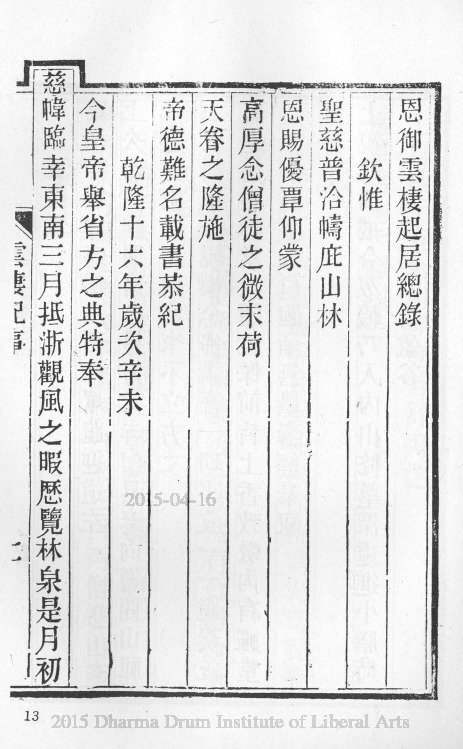 恩御雲棲起居總錄
欽惟
聖慈普洽幬庇山林
恩賜優覃仰蒙
高厚念僧徒之微末荷
天眷之隆施
帝德難名載書恭紀
乾隆十六年歲次辛未
今皇帝舉省方之典特奉
慈幃臨幸東南三月抵浙觀風之暇歷覽林泉是月初
雲棲紀事
2015-04-16
13
2015 Dharma Drum Institute of Liberal Arts